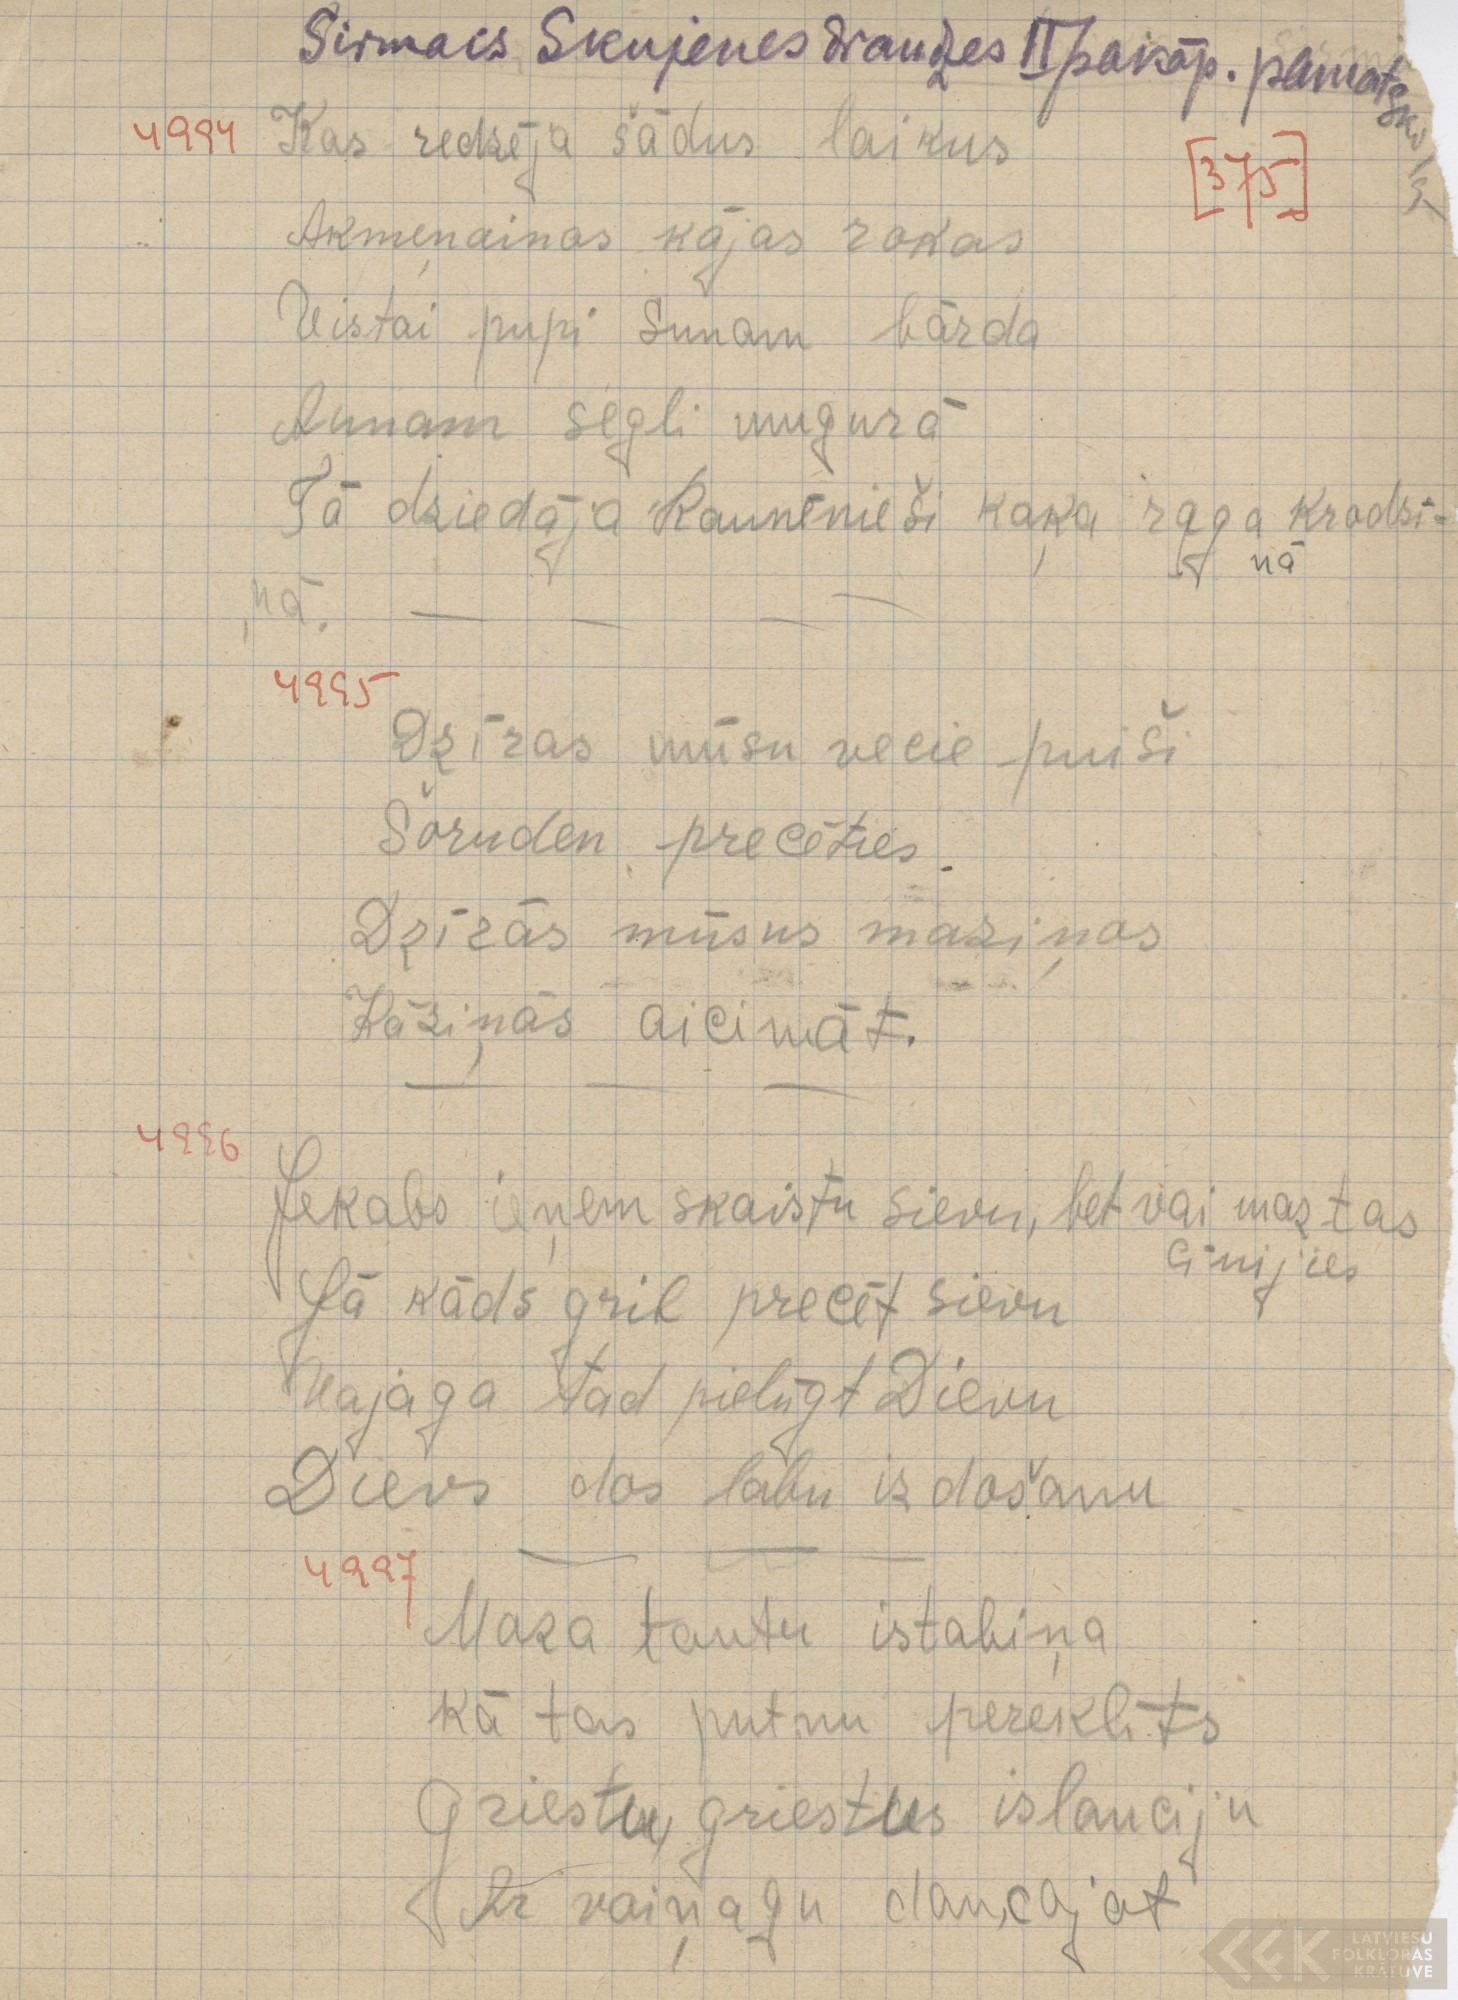 Sirmacs Skujenes draudzes II pakāp. pamatsko
4994 Kas redzēja šādus laikus
[375]
Akmeņainas kājas rokas
Vistai pupi sunam bārda
Aunam segli mugurā
Tā dziedāja Raunēnieši kaķa raga krodzi-
nā
ņā.
4995
Dzīras mūsu vecie puiši
Šoruden precēties.
Dzīrās mūsus maziņos
Kāziņās aicināt.
4996
Jekabs ieņem skaistu sievu, bet vai maz tas
cīnijies
Jā kāds grib precēt sievu
Vajaga tad pielūgt Dievu
Dievs dos labu izdošanu
4997
Maza tautu istabiņa
Kā tas putnu pereklīts
Griestu, griestus islauciju
Ar vaiņagu dancajot
LATVIEŠU
FOLKLORAS
KRĀTUVE